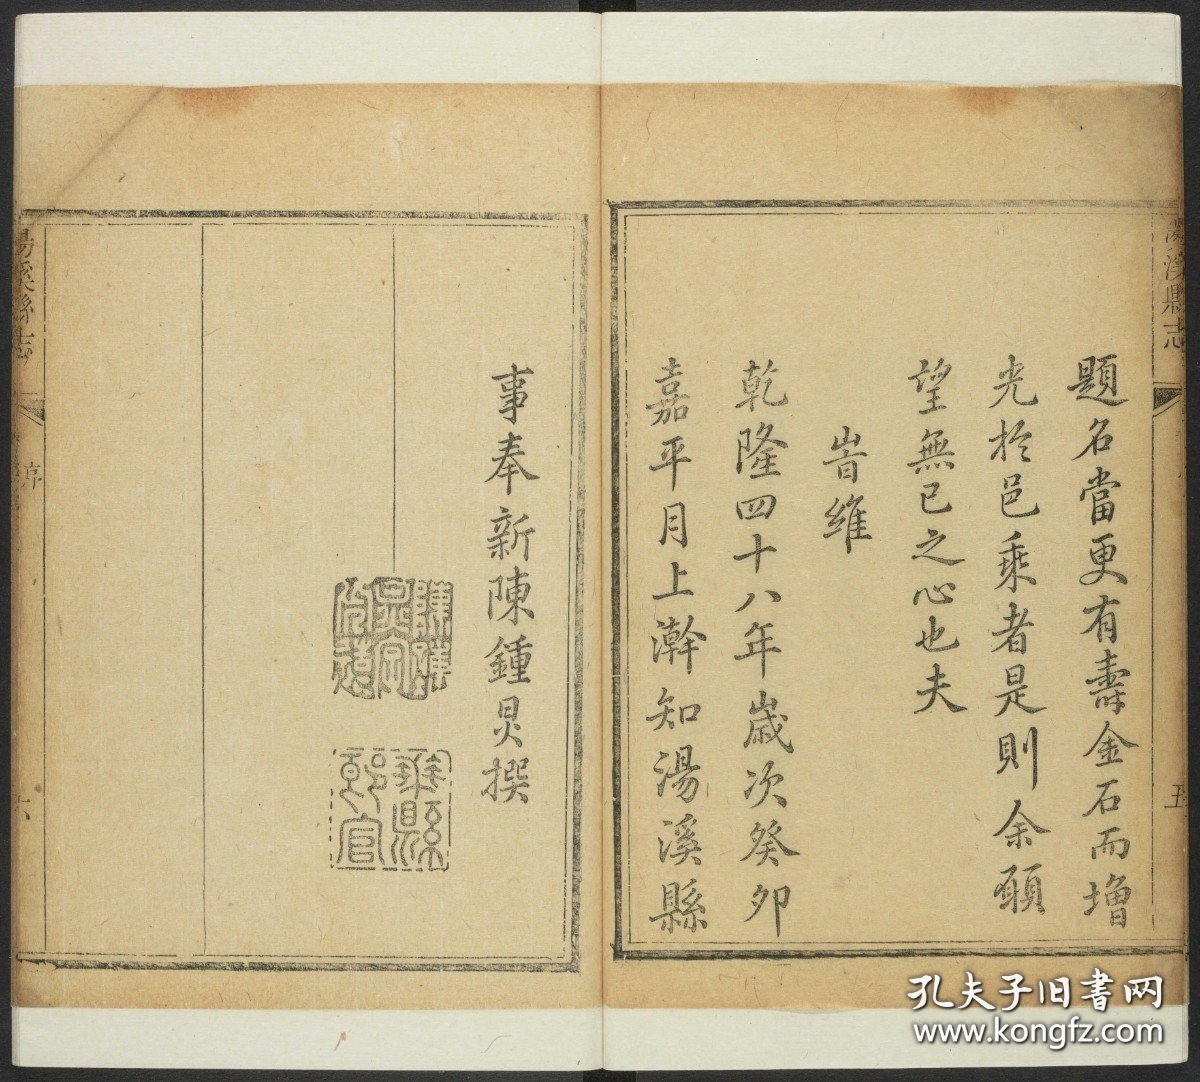 湯溪縣志
五
題名當更有壽金石而增
光於邑乘者是則余願
望無已之心也夫
旹維
乾隆四十八年歲次癸卯
嘉平月上澣知湯溪縣
事奉新陳鍾炅撰
湯溪縣志
序
六
孔夫子旧書网
www.kongfz.com